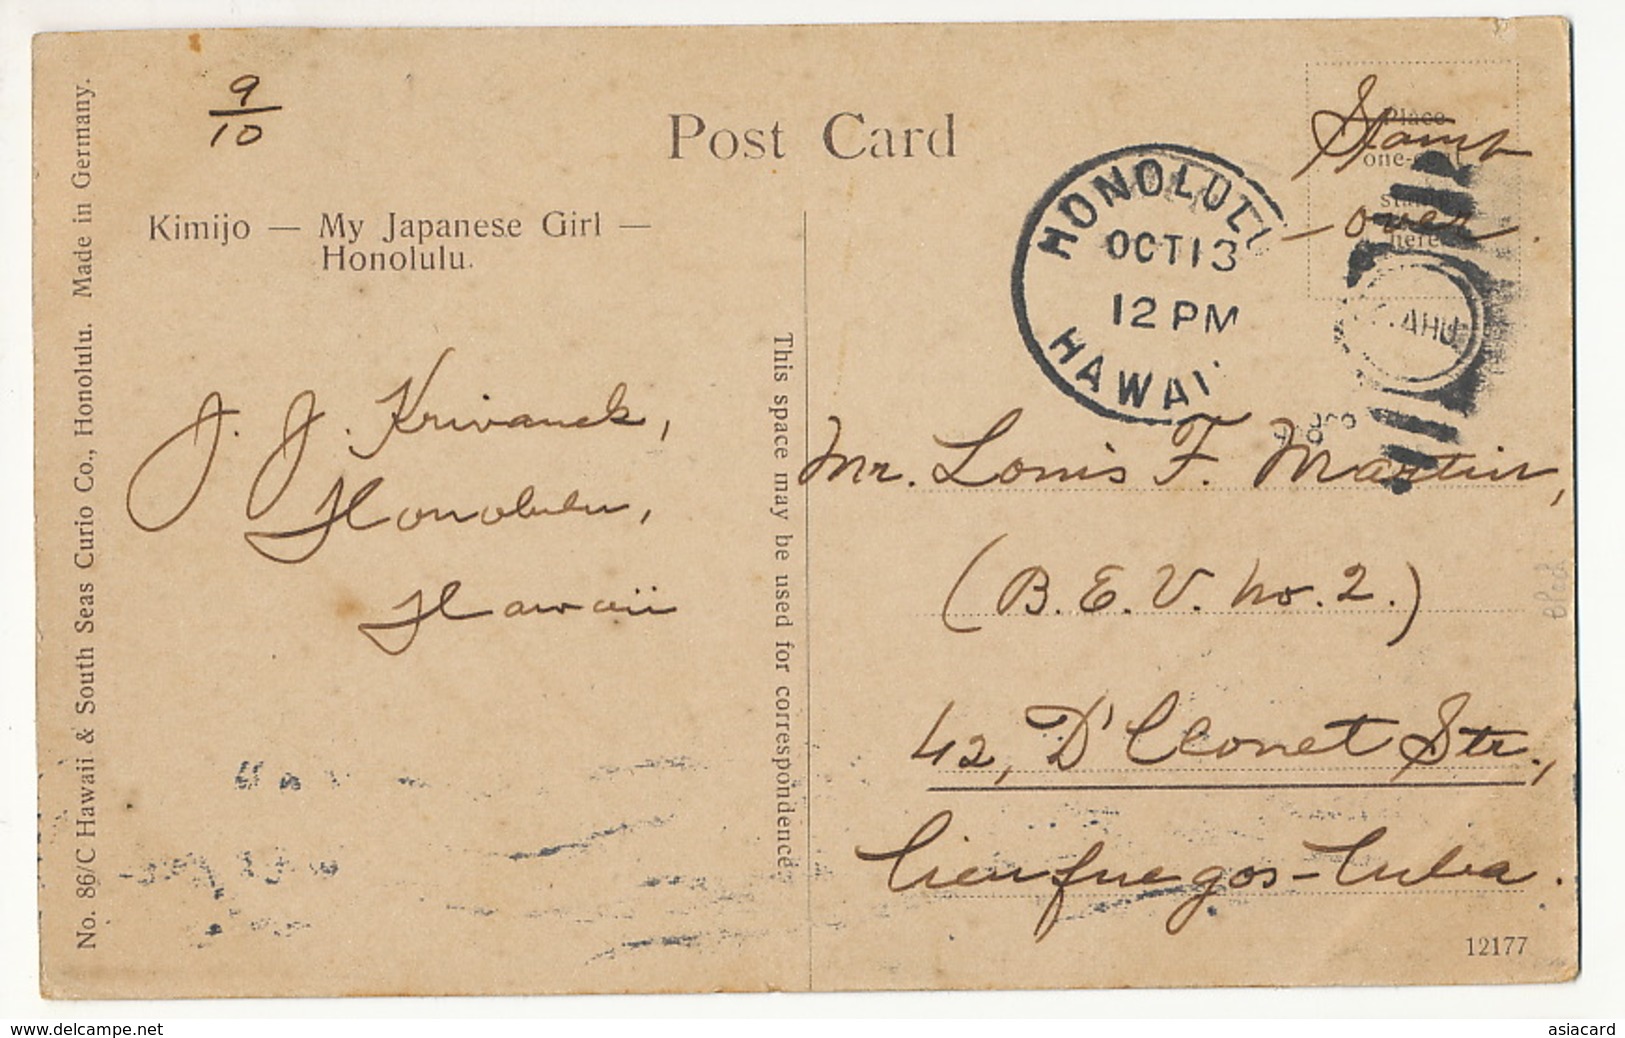 9
10
Post Card
Kimijo — My Japanese Girl —
Honolulu.
No. 86/C Hawaii & South Seas Curio Co., Honolulu. Made in Germany.
J. J. Krivanek,
Honolulu,
Hawaii
This space may be used for correspondence
Place
one-cent
stamp
here
Stamp
- over.
HONOLULU
OCT 13
12 PM
HAWAII
OAHU
Mr. Louis F. Martin,
(B. E. V. No. 2.)
42, D'Clouet Str.,
Cienfuegos - Cuba.
12177
www.delcampe.net
asiacard